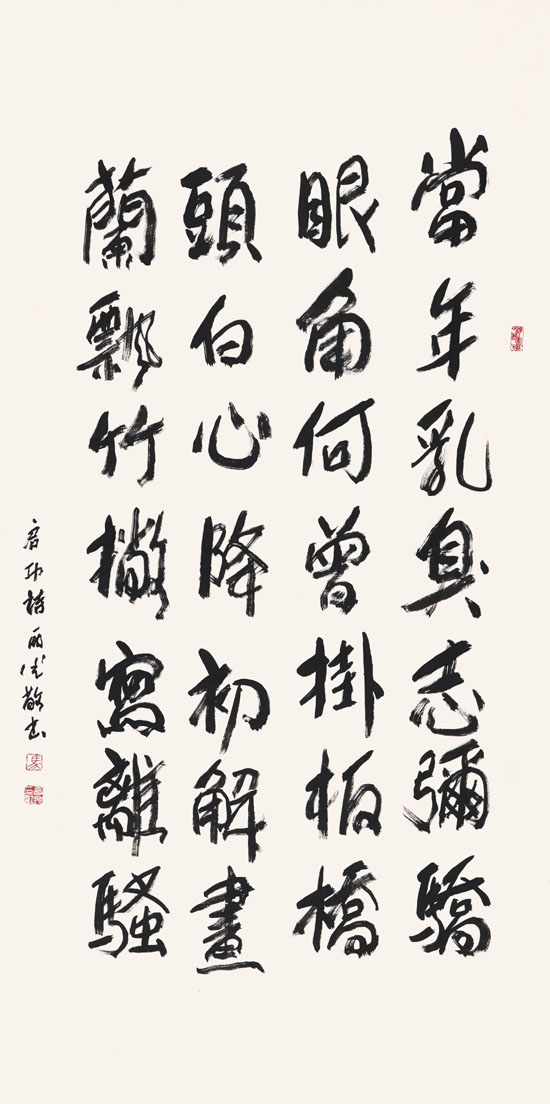 當年乳臭志彌驕
眼角何曾掛板橋
頭白心降初解畫
蘭飄竹撇寫離騷
启功詩
敬書